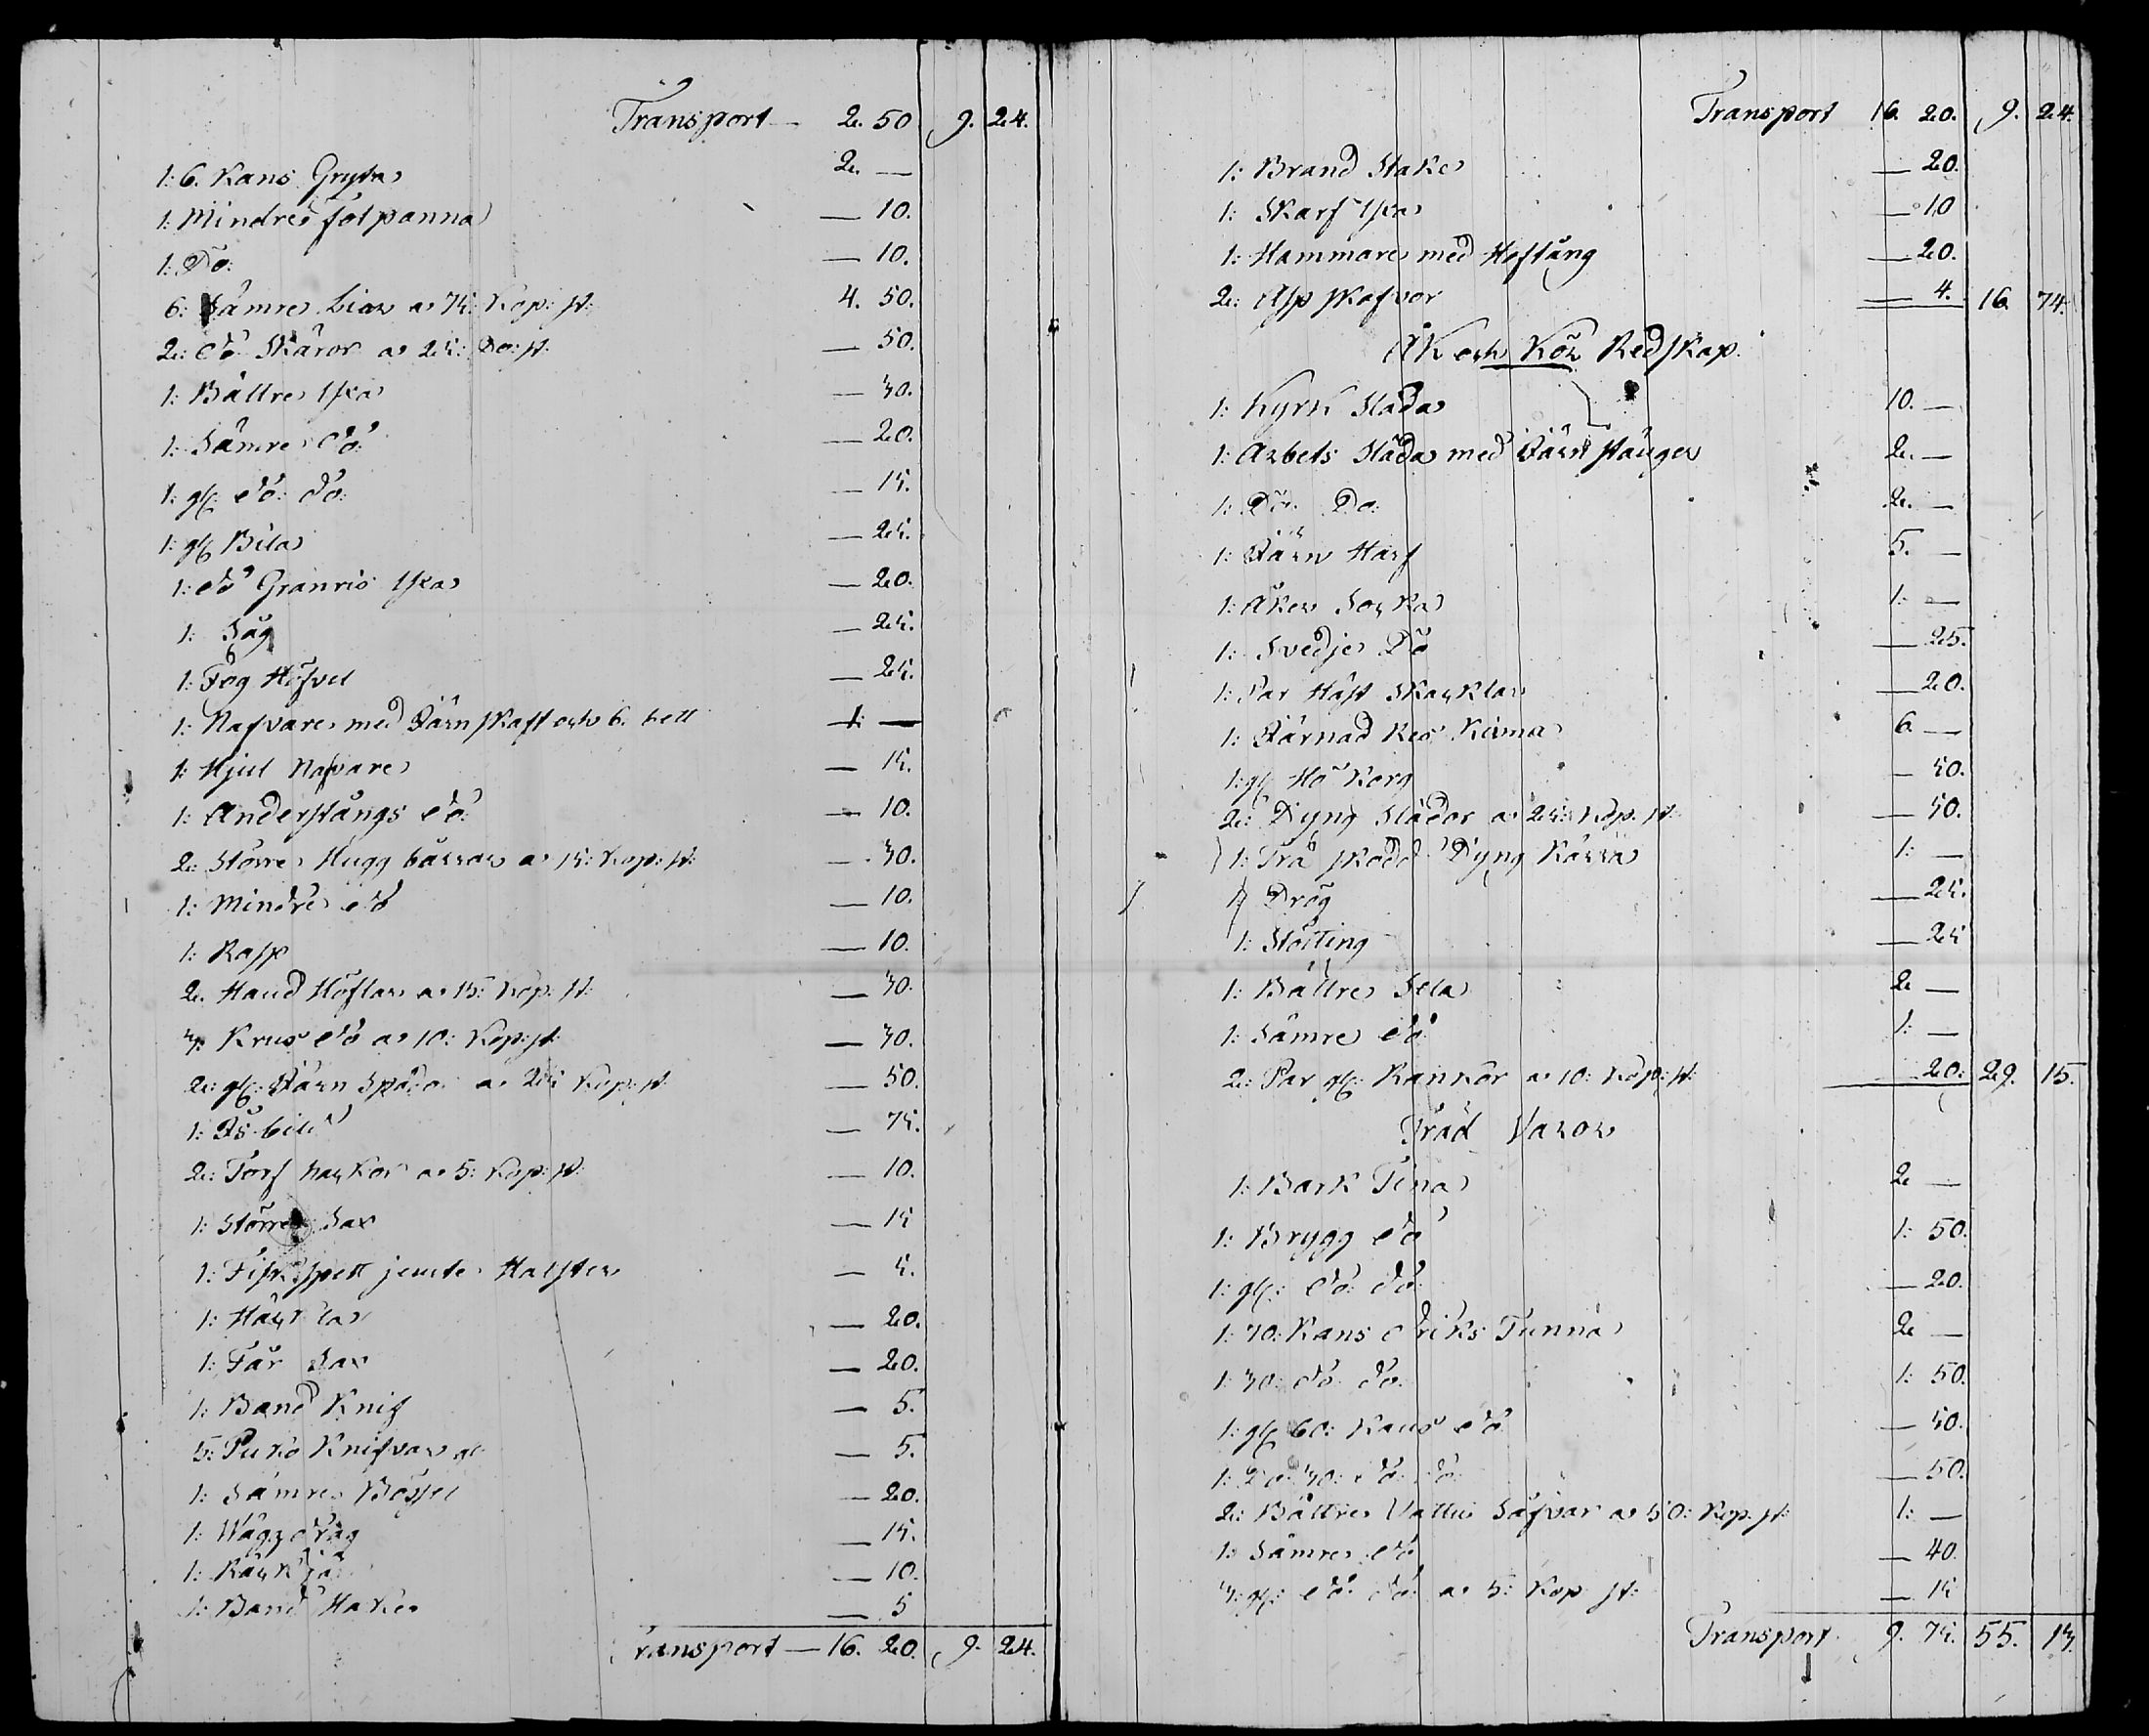 Transport — 2. 50 9. 24.
1: 6. Kans Gryta 2. —
1: Mindre fotpanna — 10.
1: Do: — 10.
6: Sämre Liar a 75: Kop: st: 4. 50.
2: do Skäror a 25: Do: st: — 50.
1: Bättre Yxa — 30.
1: Sämre do — 20.
1: gl: do: do: — 15.
1: gl: Bila — 25.
1: do Granris Yxa — 20.
1: Såg — 25.
1: Fog Höfvel — 25.
1: Nafvare med Järn skaft och 6. bett 1 —
1: Hjul Nafvare — 15.
1: Anderstångs do: — 10.
2: Större Hugg bårrar a 15: Kop: st: — 30.
1: Mindre do — 10.
1: Rasp — 10.
2. Hand Höflar a 15: Kop: st: — 30.
3: Krus do a 10: Kop: st: — 30.
2: gl: Järn Spada a 25 Kop: st — 50.
1: Is bill — 75.
2: Torf hackor a 5: Kop: st: — 10.
1: Större Sax — 15
1: Fisk spett jemte Halster — 5.
1: Häckla — 20.
1: Får Sax — 20.
1: Band Knif — 5.
5: Puko Knifvar gl — 5.
1: Sämre Bössa — 20.
1: — 15.
1: — 10.
1: Band Hake — 5
Transport — 16. 20. 9. 24.
Transport 16. 20. 9. 24.
1: Brand Stake — 20.
1: Skarf Yxa — 10
1: Hammare med Hoftång — 20.
2: Asp skafvor — 4. 16. 74.
Åk och Kör Redskap.
1: Kyrk Släda 10. —
1: Arbets Släda med Järn stänger 2. —
1: Do: Do: 2. —
1: Järn Harf 5. —
1: Åker Socka 1: —
1: Svedje Do — 25.
1: Par Häst Skacklar — 20.
1: Järnad Res Kärra 6 —
1: gl: Hö Korg — 50.
2: Dyng Slädor a 25: Kop: st: — 50.
1: Trä skodd Dyng Kärra 1: —
1: Drög — 25.
1: Stötting — 25
1: Bättre Sela 2 —
1: Sämre do 1: —
2: Par gl: Rankor a 10: Kop: st: — 20. 29. 15.
Träd Varor
1: Bark Tina 2 —
1: Brygg do 1: 50.
1: gl: do: do: — 20.
1: 70: Kans driks Tunna 2 —
1: 30: do do: 1: 50.
1: gl: 60: Kans do — 50.
1: Do 30: do: do: — 50.
2: Bättre Vattu Såfvar a 50: Kop: st: 1: —
1: Sämre do — 40.
3: gl: do: do: a 5: Kop st: — 15
Transport 9. 75. 55. 13.